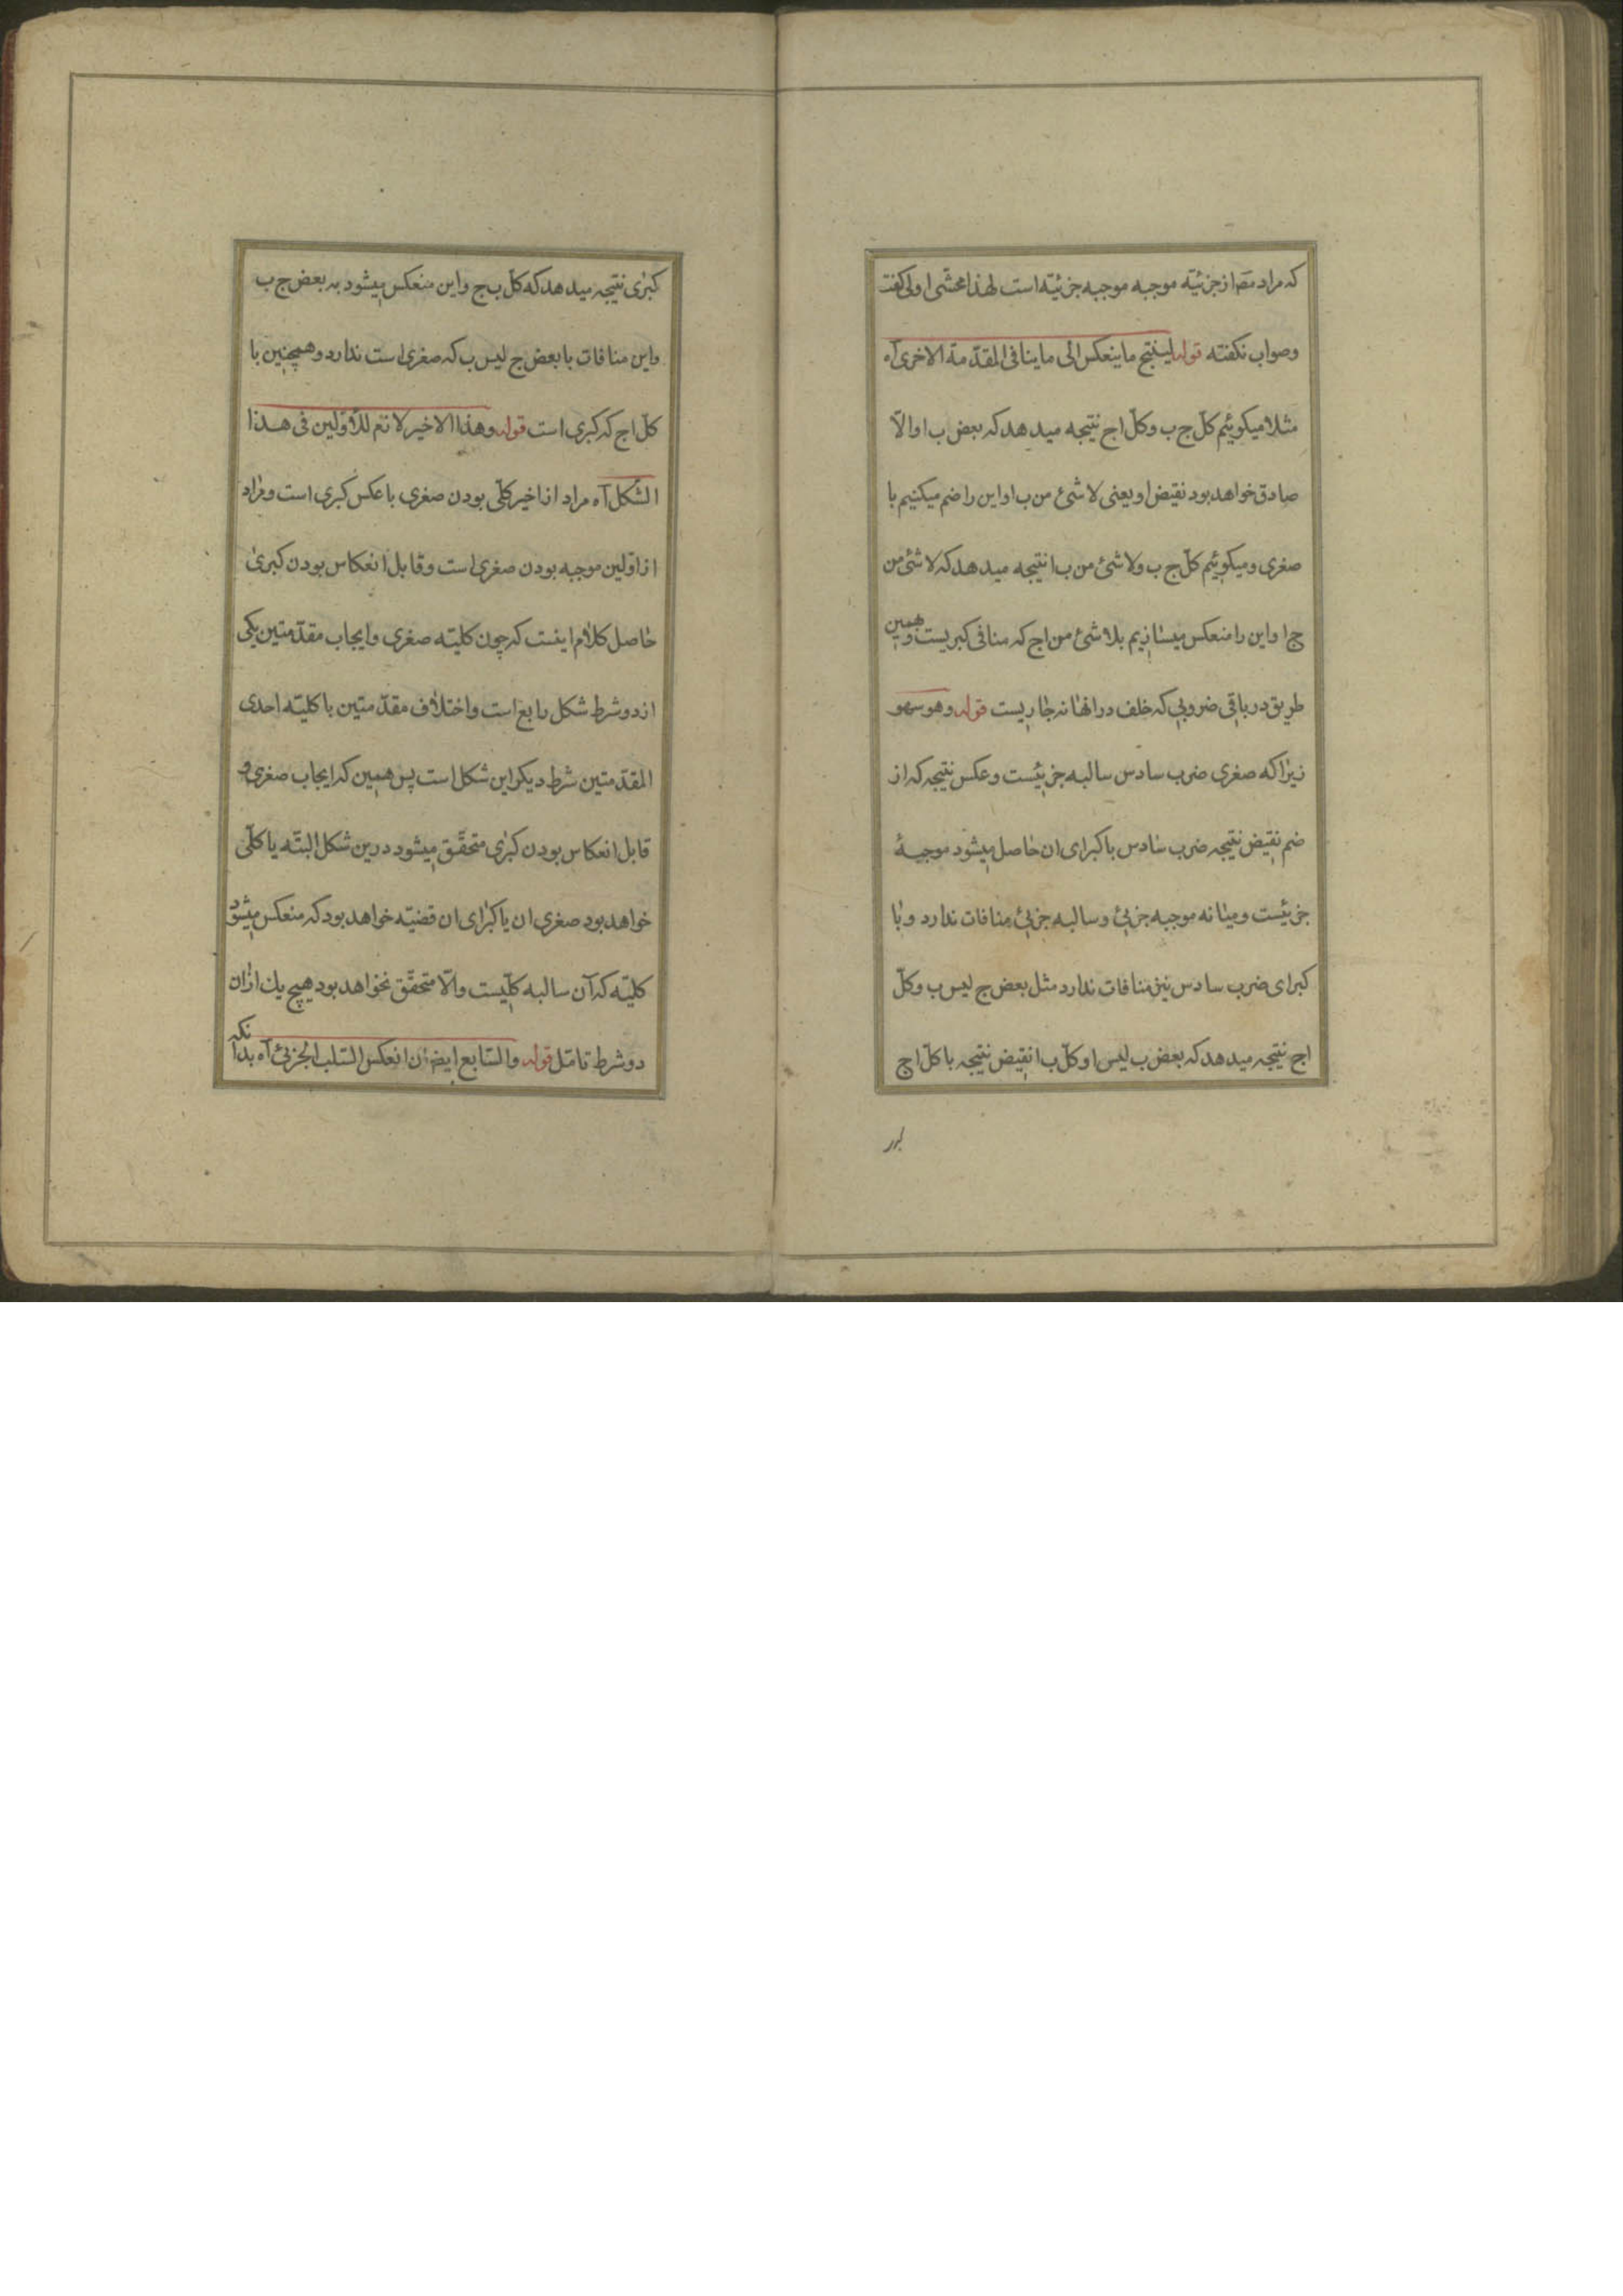 که مراد مصَ از جزئیّه موجبه موجبه جزئیّه است لهذا محشّی اولی کفت
وصواب نکفته قوله لینتج ماینعکس الی ماینافی المقدّمة الاخری آه
مثلا میکوئیم کلّ ج ب وکلّ ا ج نتیجه میدهد که بعض ب ا والّا
صادق خواهد بود نقیض او یعنی لا شئ من ب ا و این را ضم میکنیم با
صغری ومیکوئیم کلّ ج ب ولا شئ من ب ا نتیجه میدهد که لا شئ من
ج ا واین را منعکس میسازیم بلا شئ من ا ج که منافی کبریست وبهمین
طریق در باقی ضروبی که خلف در انها نه جاریست قوله وهو سهو
زیرا که صغری ضرب سادس سالبه جزئیست وعکس نتیجه که از
ضم نقیض نتیجه ضرب سادس با کبرای ان حاصل میشود موجبهٔ
جزئیست ومیانه موجبه جزئی وسالبه جزئی منافات ندارد وبا
کبرای ضرب سادس نیز منافات ندارد مثل بعض ج لیس ب وکلّ
ا ج نتیجه میدهد که بعض ب لیس ا و کلّ ب ا نقیض نتیجه با کلّ ا ج
کبری نتیجه میدهد که کلّ ب ج واین منعکس میشود به بعض ج ب
واین منافات با بعض ج لیس ب که صغری است ندارد وهمچنین با
کلّ ا ج که کبری است قوله وهذا الاخیر لازم للاوّلین فی هذا
الشّکل آه مراد از اخیر کلّی بودن صغری با عکس کبری است ومراد
از اوّلین موجبه بودن صغری است وقابل انعکاس بودن کبری
حاصل کلام اینست که چون کلیّه صغری وایجاب مقدّمتین یکی
از دو شرط شکل رابع است واختلاف مقدّمتین با کلیّه احدی
المقدّمتین شرط دیکر این شکل است پس همین که ایجاب صغری و
قابل انعکاس بودن کبری متحقّق میشود درین شکل البتّه یا کلّی
خواهد بود صغری ان یا کبرای ان قضیّه خواهد بود که منعکس میشود
کلیّه که آن سالبه کلّیست والّا متحقّق نخواهد بود هیچ یك ازان
دو شرط تامّل قوله والسّابع ایضا ان انعکس السّلب الجزئی آه بدانکه